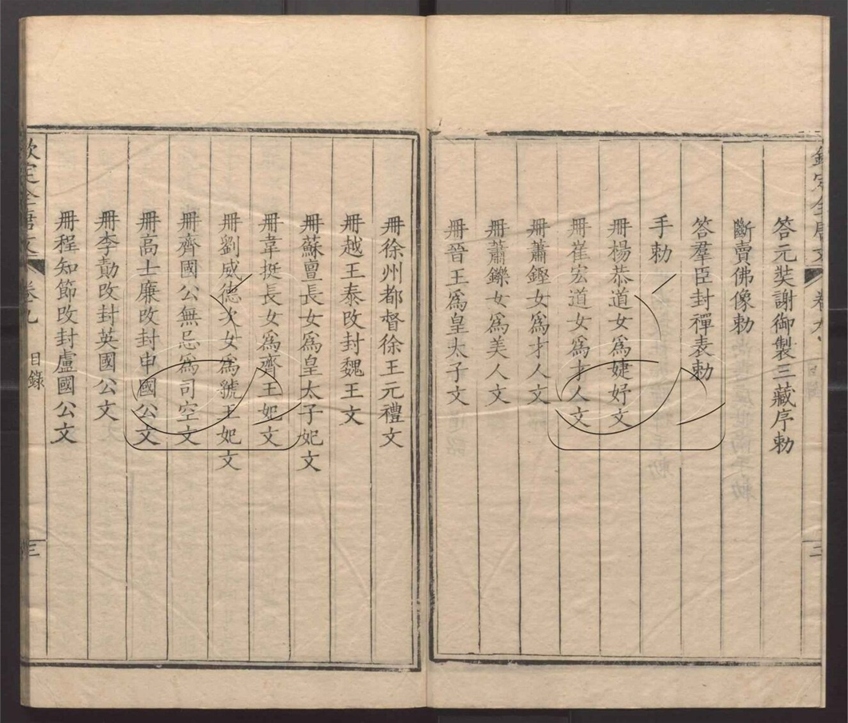 答元奘謝御製三藏序勅
斷賣佛像勅
答羣臣封禪表勅
手勅
冊楊恭道女爲婕妤文
冊崔宏道女爲才人文
冊蕭鏗女爲才人文
冊蕭鑠女爲美人文
冊晉王爲皇太子文
冊徐州都督徐王元禮文
冊越王泰改封魏王文
冊蘇亶長女爲皇太子妃文
冊韋挺長女爲齊王妃文
冊劉威德次女爲虢王妃文
冊齊國公無忌爲司空文
冊高士廉改封申國公文
冊李勣改封英國公文
冊程知節改封盧國公文
欽定全唐文 卷九 目錄 三